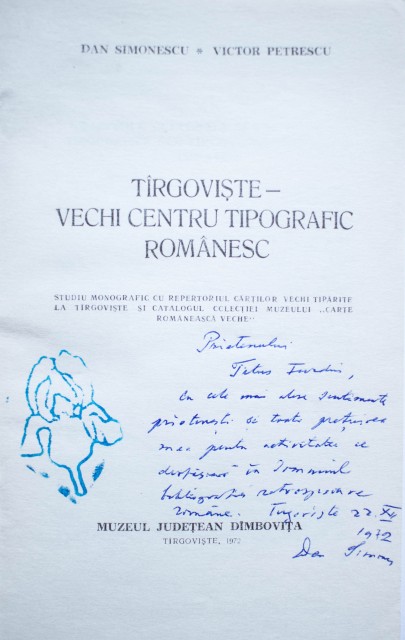 DAN SIMONESCU * VICTOR PETRESCU
TÎRGOVIȘTE –
VECHI CENTRU TIPOGRAFIC
ROMÂNESC
STUDIU MONOGRAFIC CU REPERTORIUL CĂRȚILOR VECHI TIPĂRITE
LA TÎRGOVIȘTE ȘI CATALOGUL COLECȚIEI MUZEULUI „CARTE
ROMÂNEASCĂ VECHE”
Prietenului
cu cele mai alese sentimente
prietenești și toată prețuirea
mea pentru activitatea ce
desfășoară în domeniul
bibliografiei retrospective
române. Tîrgoviște 22.XII
1972
Dan Simonescu
MUZEUL JUDEȚEAN DÎMBOVIȚA
TÎRGOVIȘTE, 1972